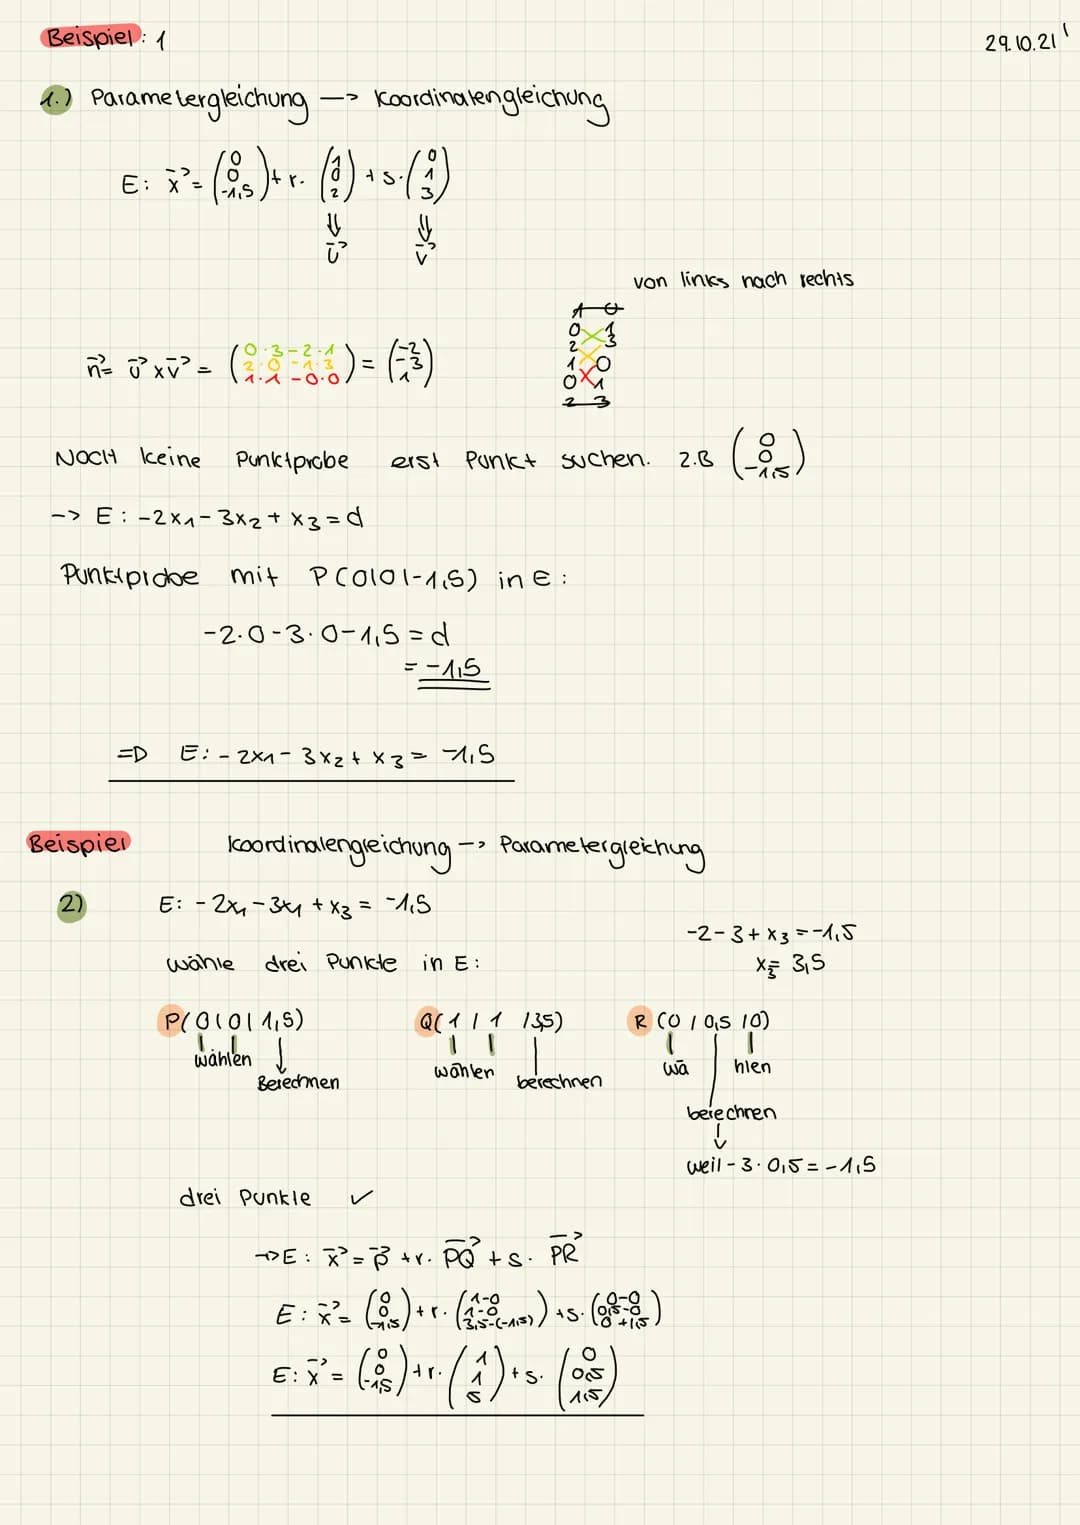 Beispiel: 1
29.10.21
1.) Parametergleichung —> Koordinatengleichung
E: x⃗ = (0 0 -1,5) + r· (1 0 2) + s· (0 1 3)
⇓ ⇓
u⃗ v⃗
von links nach rechts
1 0
0 1
2 3
1 0
0 1
2 3
n⃗ = u⃗ x v⃗ = (0·3-2·1 2·0-1·3 1·1-0·0) = (-2 -3 1)
NOCH keine Punktprobe erst Punkt suchen. z.B (0 0 -1,5)
-> E: -2x₁-3x₂+x₃=d
Punktprobe mit P(0|0|-1,5) in E:
-2·0-3·0-1,5=d
=-1,5
=D E: -2x₁-3x₂+x₃= -1,5
Beispiel Koordinatengleichung -> Parametergleichung
2) E: -2x₁-3x₁+x₃= -1,5
-2-3+x₃=-1,5
wähle drei Punkte in E:
x₃= 3,5
P(0|0|1,5) Q(1|1|3,5) R(0|0,5|0)
wählen wählen wä hlen
Berechnen berechnen
berechnen
weil -3·0,5=-1,5
drei Punkte ✓
->E: x⃗ = p⃗ +r· PQ⃗ +s· PR⃗
E: x⃗ = (0 0 -1,5) +r· (1-0 1-0 3,5-(-1,5)) +s· (0-0 0,5-0 0+1,5)
E: x⃗ = (0 0 -1,5) +r· (1 1 5) +s· (0 0,5 1,5)